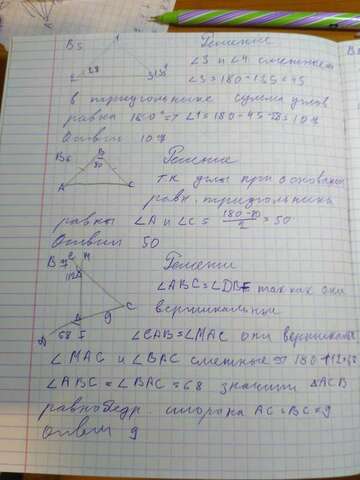 В5
Решение
1
2
28
3
135
∠3 и ∠4 смежные
∠3=180-135=45
в треугольнике сумма углов
равна 180° ⇒ ∠1=180-45-28=107
Ответ 107
В6
В
80
А
С
Решение
т.к углы при основании
равн. треугольника
равны ∠A и ∠C = 180-80/2 = 50
Ответ 50
В7
М
112
С
9
68
Решение
∠ABC=∠DBE так как они
вертикальные
∠EAB=∠MAC они вертикальн
∠MAC и ∠BAC смежные ⇒ 180-112=68
∠ABC=∠BAC=68 значит △ACB
равнобедр. сторона AC=BC=9
Ответ 9